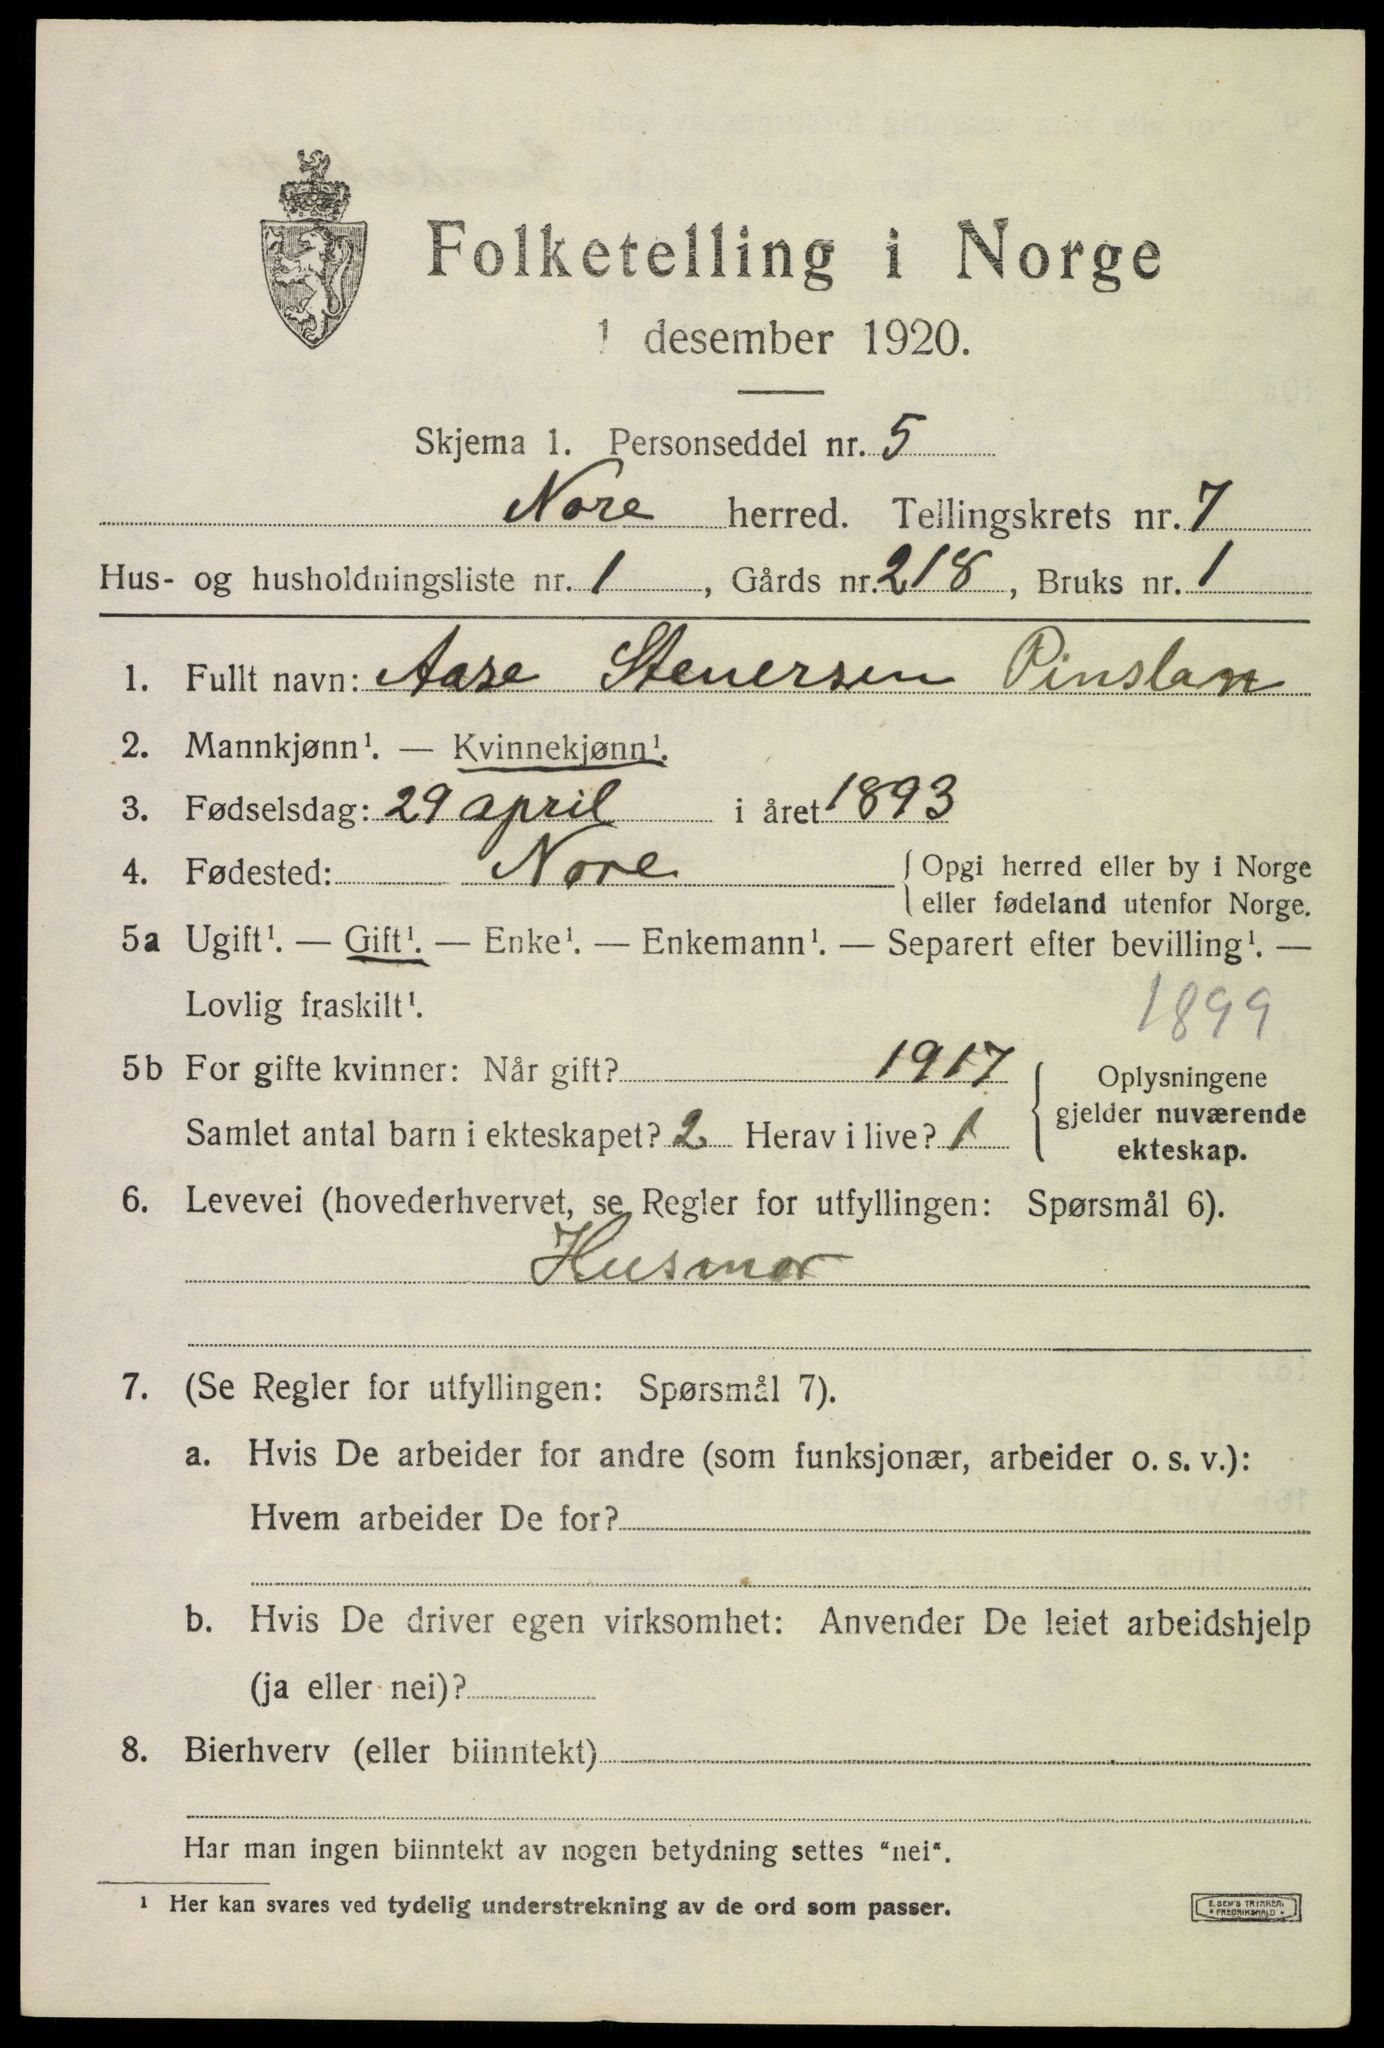 Folketelling i Norge
1 desember 1920.
Skjema 1. Personseddel nr. 5
Nore herred. Tellingskrets nr. 7
Hus- og husholdningsliste nr. 1, Gårds nr. 218, Bruks nr. 1
1. Fullt navn: Aase Stenersen Pinslan
2. Mannkjønn¹. — Kvinnekjønn¹.
3. Fødselsdag: 29 april i året 1893
4. Fødested: Nore { Opgi herred eller by i Norge
eller fødeland utenfor Norge.
5a Ugift¹. — Gift¹. — Enke¹. — Enkemann¹. — Separert efter bevilling¹. —
Lovlig fraskilt¹. 1899
5b For gifte kvinner: Når gift? 1917
Samlet antal barn i ekteskapet? 2 Herav i live? 1
Oplysningene
gjelder nuværende
ekteskap.
6. Levevei (hovederhvervet, se Regler for utfyllingen: Spørsmål 6).
Husmor
7. (Se Regler for utfyllingen: Spørsmål 7).
a. Hvis De arbeider for andre (som funksjonær, arbeider o. s. v.):
Hvem arbeider De for?
b. Hvis De driver egen virksomhet: Anvender De leiet arbeidshjelp
(ja eller nei)?
8. Bierhverv (eller biinntekt)
Har man ingen biinntekt av nogen betydning settes "nei".
¹ Her kan svares ved tydelig understrekning av de ord som passer.
E. SEM'S TRYKKERI
FREDRIKSHALD